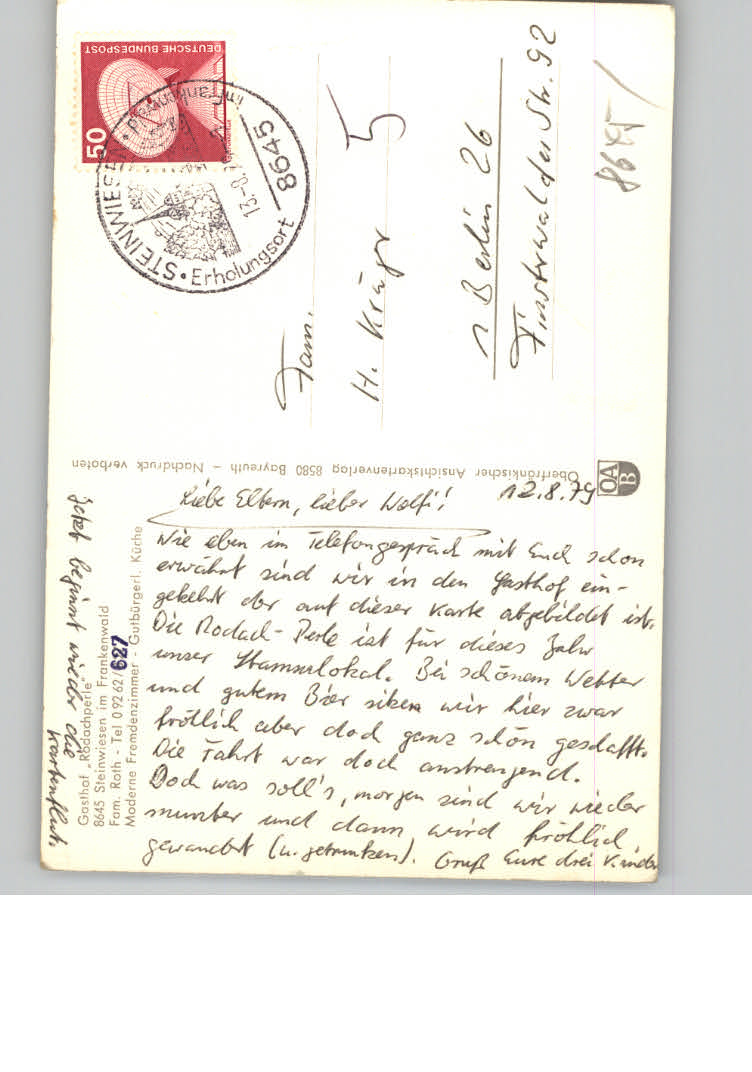 12.8.79
Liebe Eltern, lieber Wolfi!
Wie eben im Telefongespräch mit Euch schon
erwähnt sind wir in den Gasthof ein-
gekehrt der auf dieser Karte abgebildet ist.
Die Rodach-Perle ist für dieses Jahr
unser Stammlokal. Bei schönem Wetter
und gutem Bier sitzen wir hier zwar
fröhlich aber doch ganz schön geschafft.
Die Fahrt war doch anstrengend.
Doch was soll's, morgen sind wir wieder
munter und dann wird fröhlich
gewandert (u. getrunken). Gruß Eure drei Kinder
Jetzt beginnt wieder die
Kartenflut.
Gasthof „Rodachperle"
8645 Steinwiesen im Frankenwald
Fam. Roth - Tel 0 92 62/627
Moderne Fremdenzimmer - Gutbürgerl. Küche
Oberfränkischer Ansichtskartenverlag 8580 Bayreuth - Nachdruck verboten
OA
B
Fam.
H. Krüger
1 Berlin 26
Finsterwalder Str. 92
8645
DEUTSCHE BUNDESPOST
50
STEINWIESEN • Erholungsort
im Frankenwald
8645
13.-8.